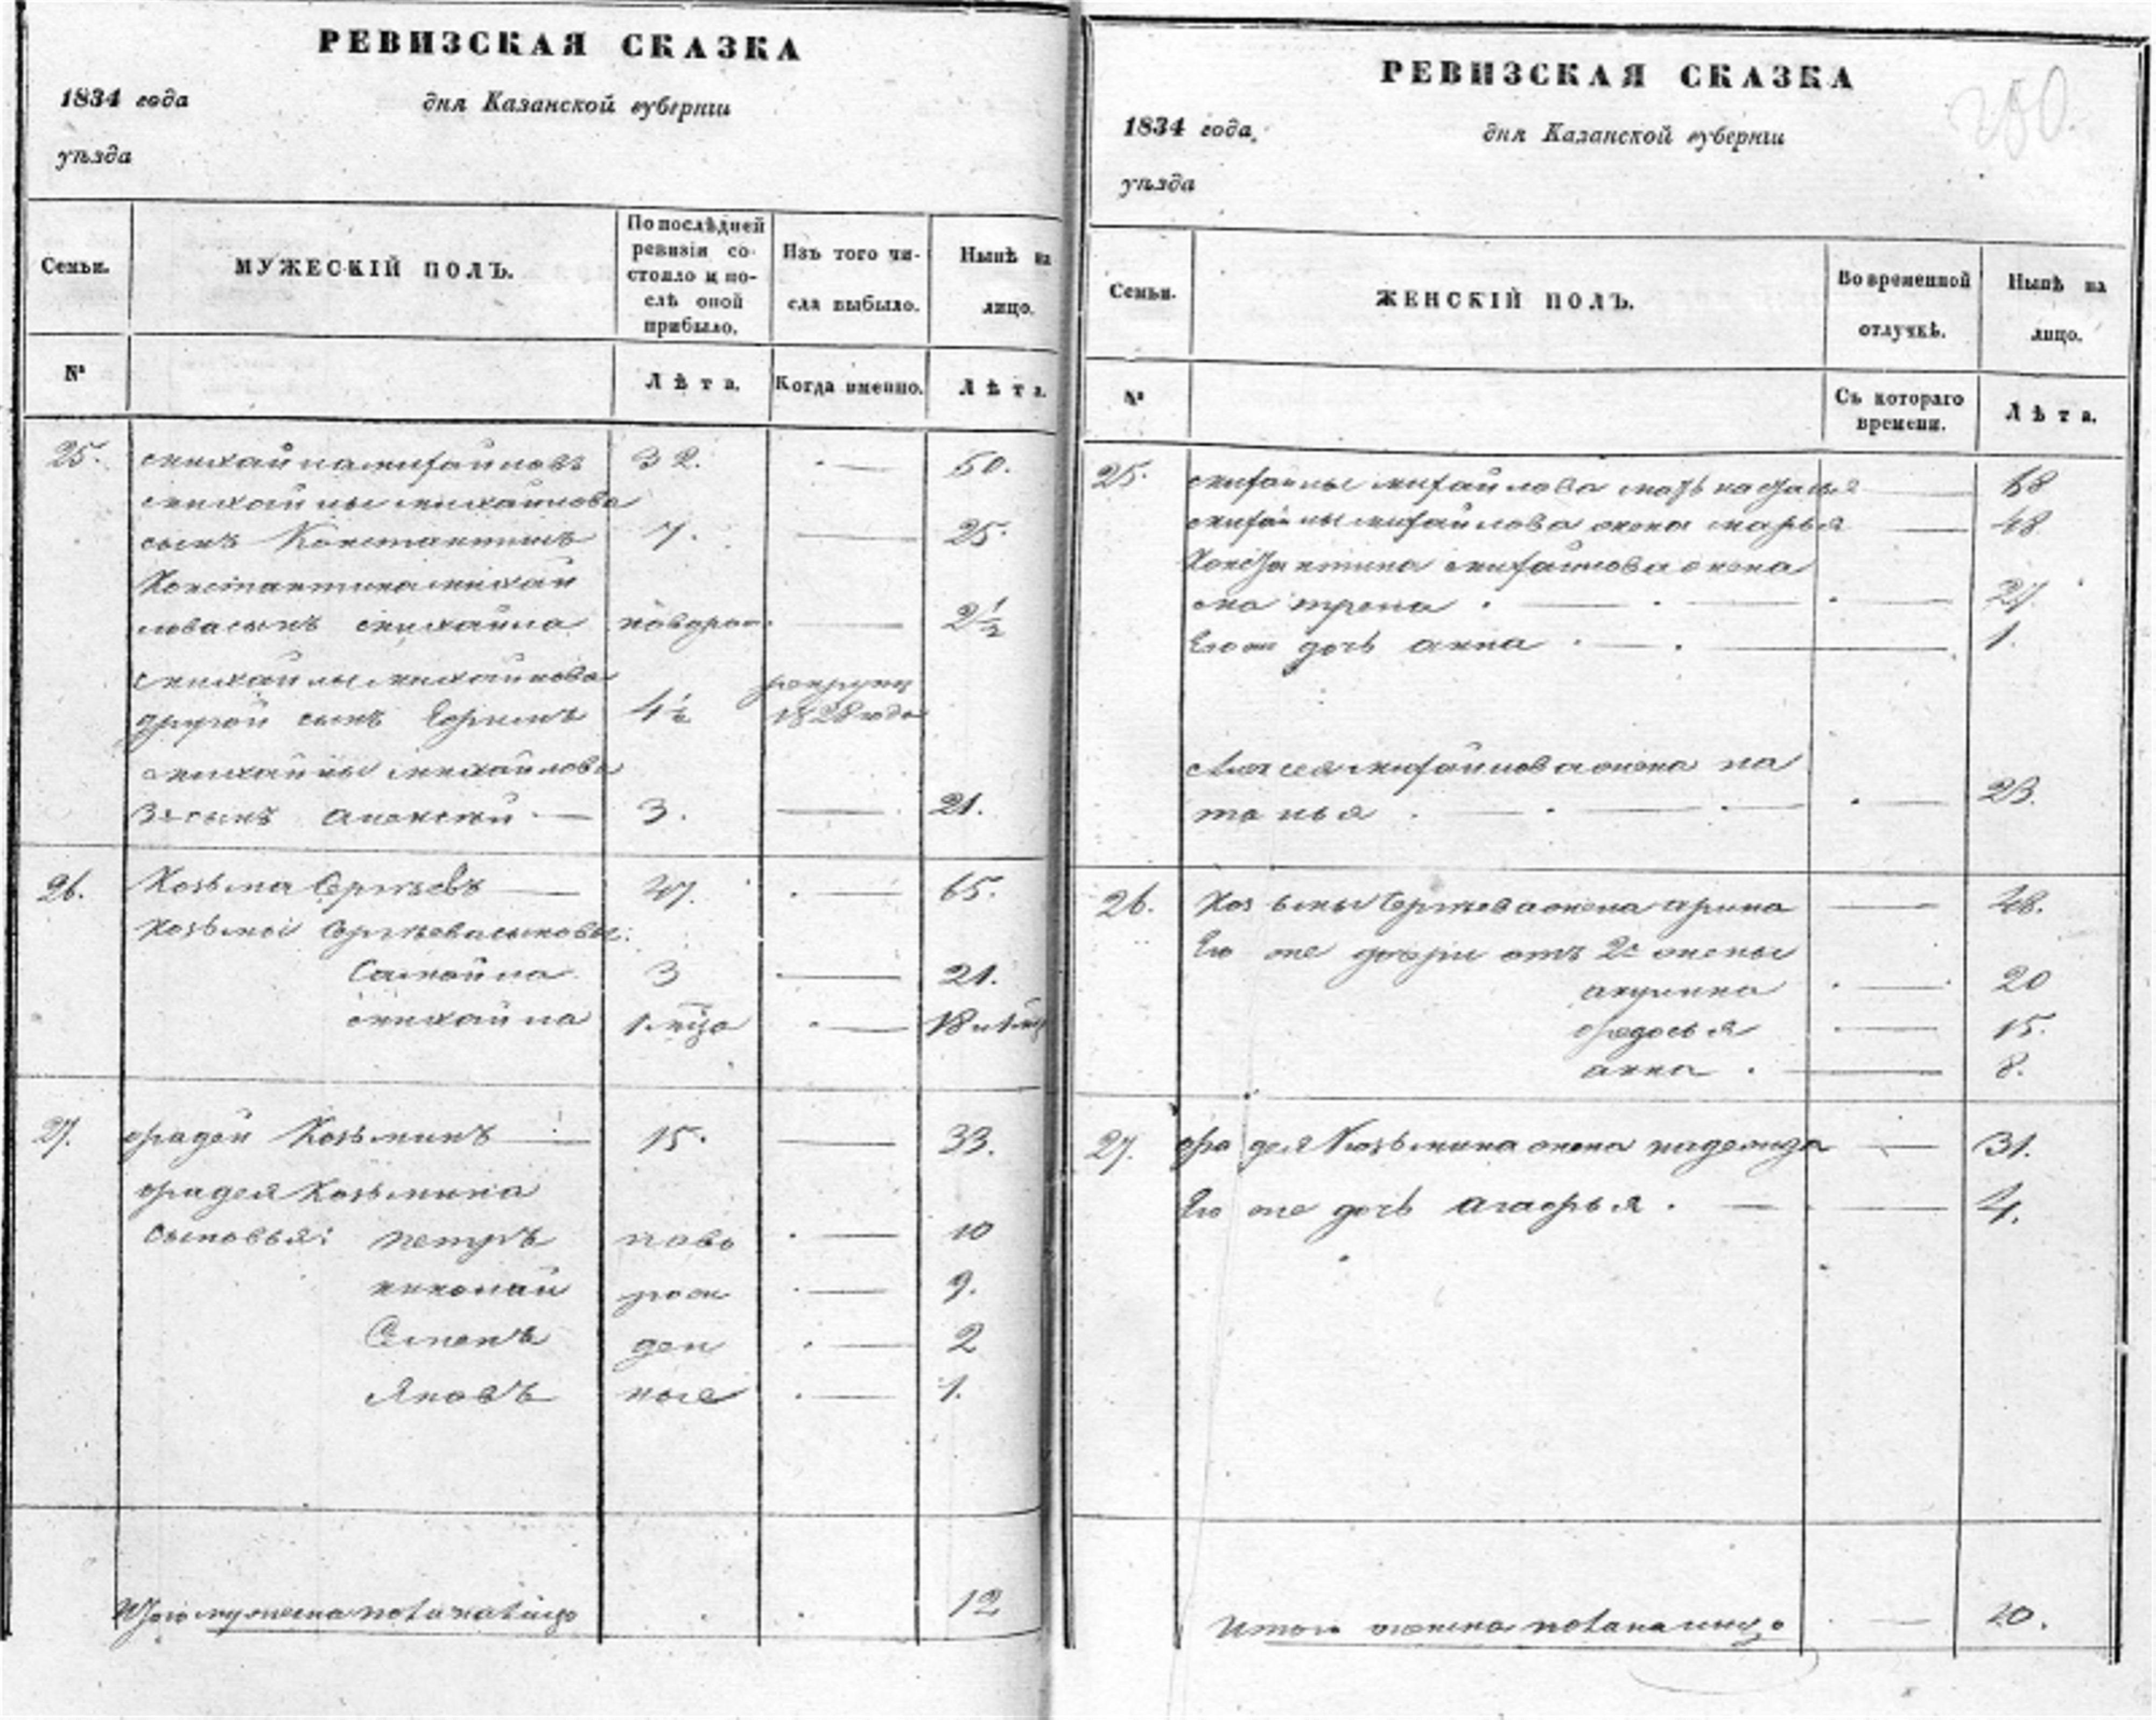 РЕВИЗСКАЯ СКАЗКА
1834 года дня Казанской губернiи
уѣзда
Семьи. МУЖЕСКIЙ ПОЛЪ. По послѣдней ревизiи состояло и послѣ оной прибыло. Изъ того числа выбыло. Нынѣ на лицо.
№ Лѣта. Когда именно. Лѣта.
25. Михайла Михайловъ 32. 50.
Михайлы Михайлова
сынъ Константинъ 7. 25.
Константина Михай
лова сынъ Михайла новорож. 2½
Михайлы Михайлова рекруты
другой сынъ Ефримъ 4½ 1828 года
Михайлы Михайлова
3й сынъ Алексей 3. 21.
26. Козьма Сергѣевъ 47. 65.
Козьмы Сергѣева сыновья:
Самойла 3 21.
Михайла 1 м҃ца 18 и 1 м
27. Фадей Козьминъ 15. 33.
Фадея Козьмина
сыновья: Петръ ново 10
Николай рож 9.
Семенъ ден 2
Яковъ ные 1.
Итого мужеска пола налицо 12
РЕВИЗСКАЯ СКАЗКА
250.
1834 года, дня Казанской губернiи
уѣзда
Семьи. ЖЕНСКIЙ ПОЛЪ. Во временной отлучкѣ. Нынѣ на лицо.
№ Съ котораго времени. Лѣта.
25. Михайлы Михайлова мать Наталья 68
Михайлы Михайлова жена Марья 48
Константина Михайлова жена
Матрена 27.
Его же дочь Анна 1.
Алексея Михайлова жена На
талья 23.
26. Козьмы Сергѣева жена Арина 48.
Его же дочери отъ 2й жены
Акулина 20
Федосья 15.
Анна 8.
27. Фадея Козьмина жена Надежда 31.
Его же дочь Агафья 4.
Итого женска пола налицо 10.